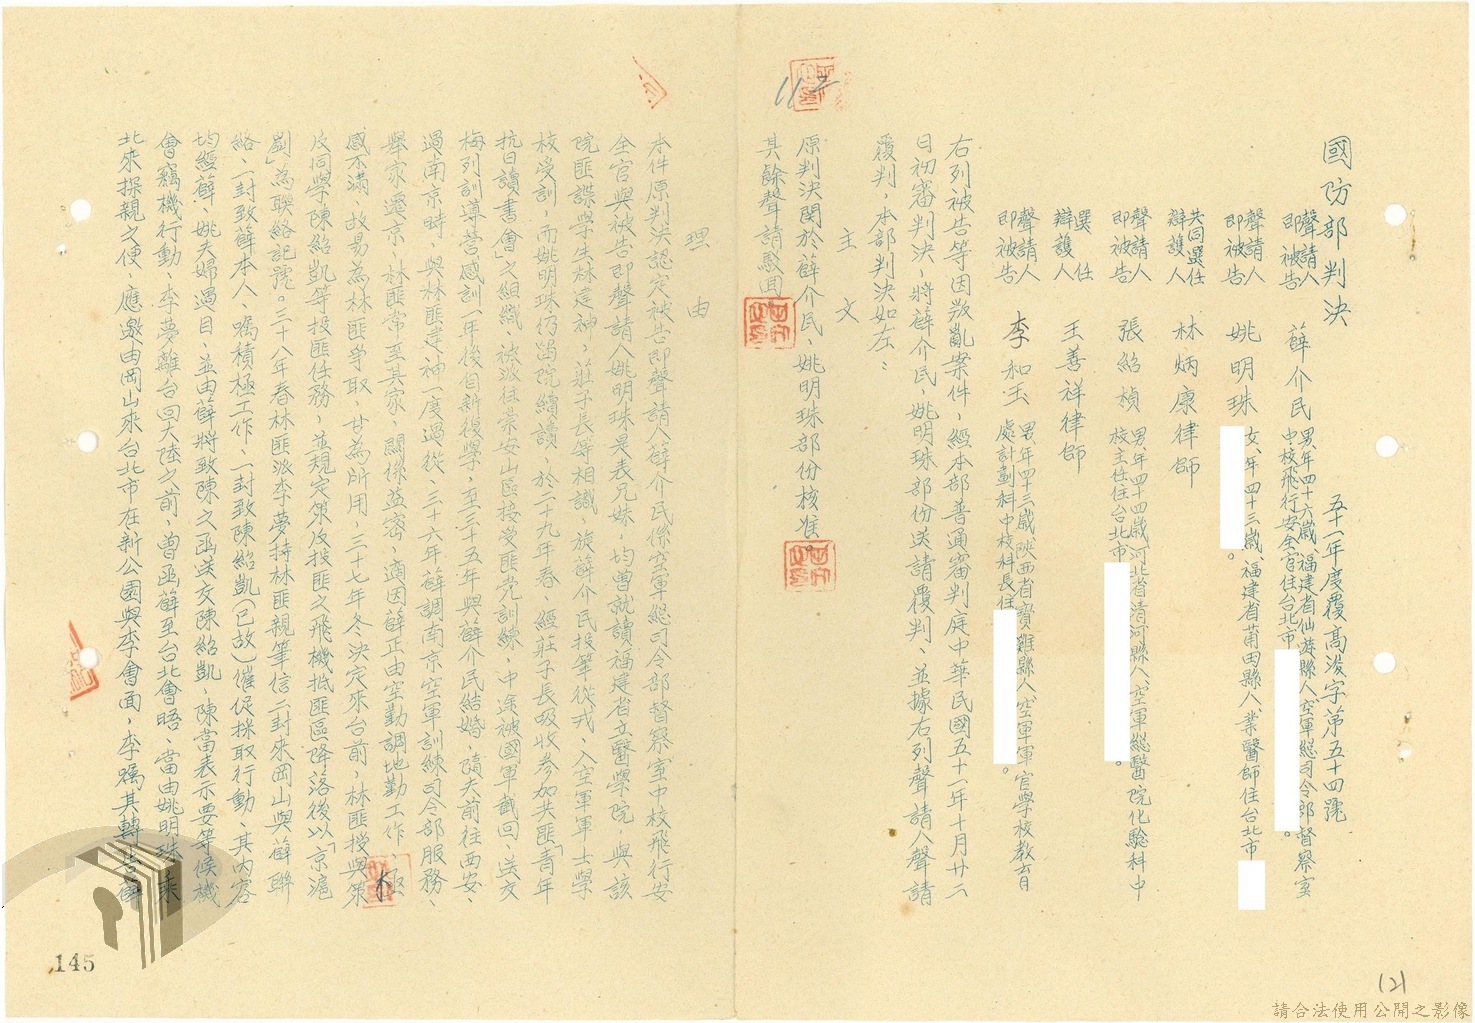 國防部判決
五十一年度覆高浚字第五十四號
聲請人
即被告
薛介民
男、年四十六歲、福建省仙游縣人、空軍總司令部督察室
中校飛行安全官住台北市
。
聲請人
即被告
姚明珠
女、年四十三歲、福建省莆田縣人、業醫師住台北市
。
共同選任
辯護人
林炳康律師
聲請人
即被告
張紹楨
男、年四十四歲河北省清河縣人、空軍總醫院化驗科中
校主任住台北市
。
選任
辯護人
王善祥律師
聲請人
即被告
李和玉
男、年四三歲陝西省寶雞縣人、空軍軍官學校教育
處計劃科中校科長住
。
右列被告等因叛亂案件、經本部普通審判庭中華民國五十一年十月廿二
日初審判決、將薛介民、姚明珠部份送請覆判、並據右列聲請人聲請
覆判、本部判決如左：
主文
原判決関於薛介民、姚明珠部份核准。
其餘聲請駁回
理由
本件原判決認定被告即聲請人薛介民係空軍總司令部督察室中校飛行安
全官與被告即聲請人姚明珠是表兄妹、均曾就讀福建省立醫學院、與該
院匪諜學生林建神、莊子長等相識、旋薛介民投筆從戎、入空軍軍士學
校受訓、而姚明珠仍留院續讀、於二十九年春、經莊子長吸收參加共匪「青年
抗日讀書會」之組織、被派往崇安山區接受匪党訓練、中途被國軍截回、送交
梅列訓導營感訓一年後自新復學、至三十五年與薛介民結婚、隨夫前往西安、
過南京時、與林匪建神一度過從、三十六年薛調南京空軍訓練司令部服務、
舉家遷京、林匪常至其家、關係益密、適因薛正由空勤調地勤工作、極
感不滿、故易為林匪爭取、甘為所用、三十七年冬決定來台前、林匪授與策
反同學陳紹凱等投匪任務、並規定策反投匪之飛機抵匪區降落後以「京滬
劉」為聯絡記號。三十八年春林匪派李夢持林匪親筆信二封來岡山與薛聯
絡、一封致薛本人、囑積極工作、一封致陳紹凱（已故）催促採取行動、其內容
均經薛、姚夫婦過目、並由薛將致陳之函送交陳紹凱、陳當表示要等候機
會竊機行動、李夢離台回大陸之前、曾函薛至台北會晤、當由姚明珠乘
北來探親之便、應邀由岡山來台北市在新公園與李會面、李囑其轉告薛
145
(2)
請合法使用公開之影像